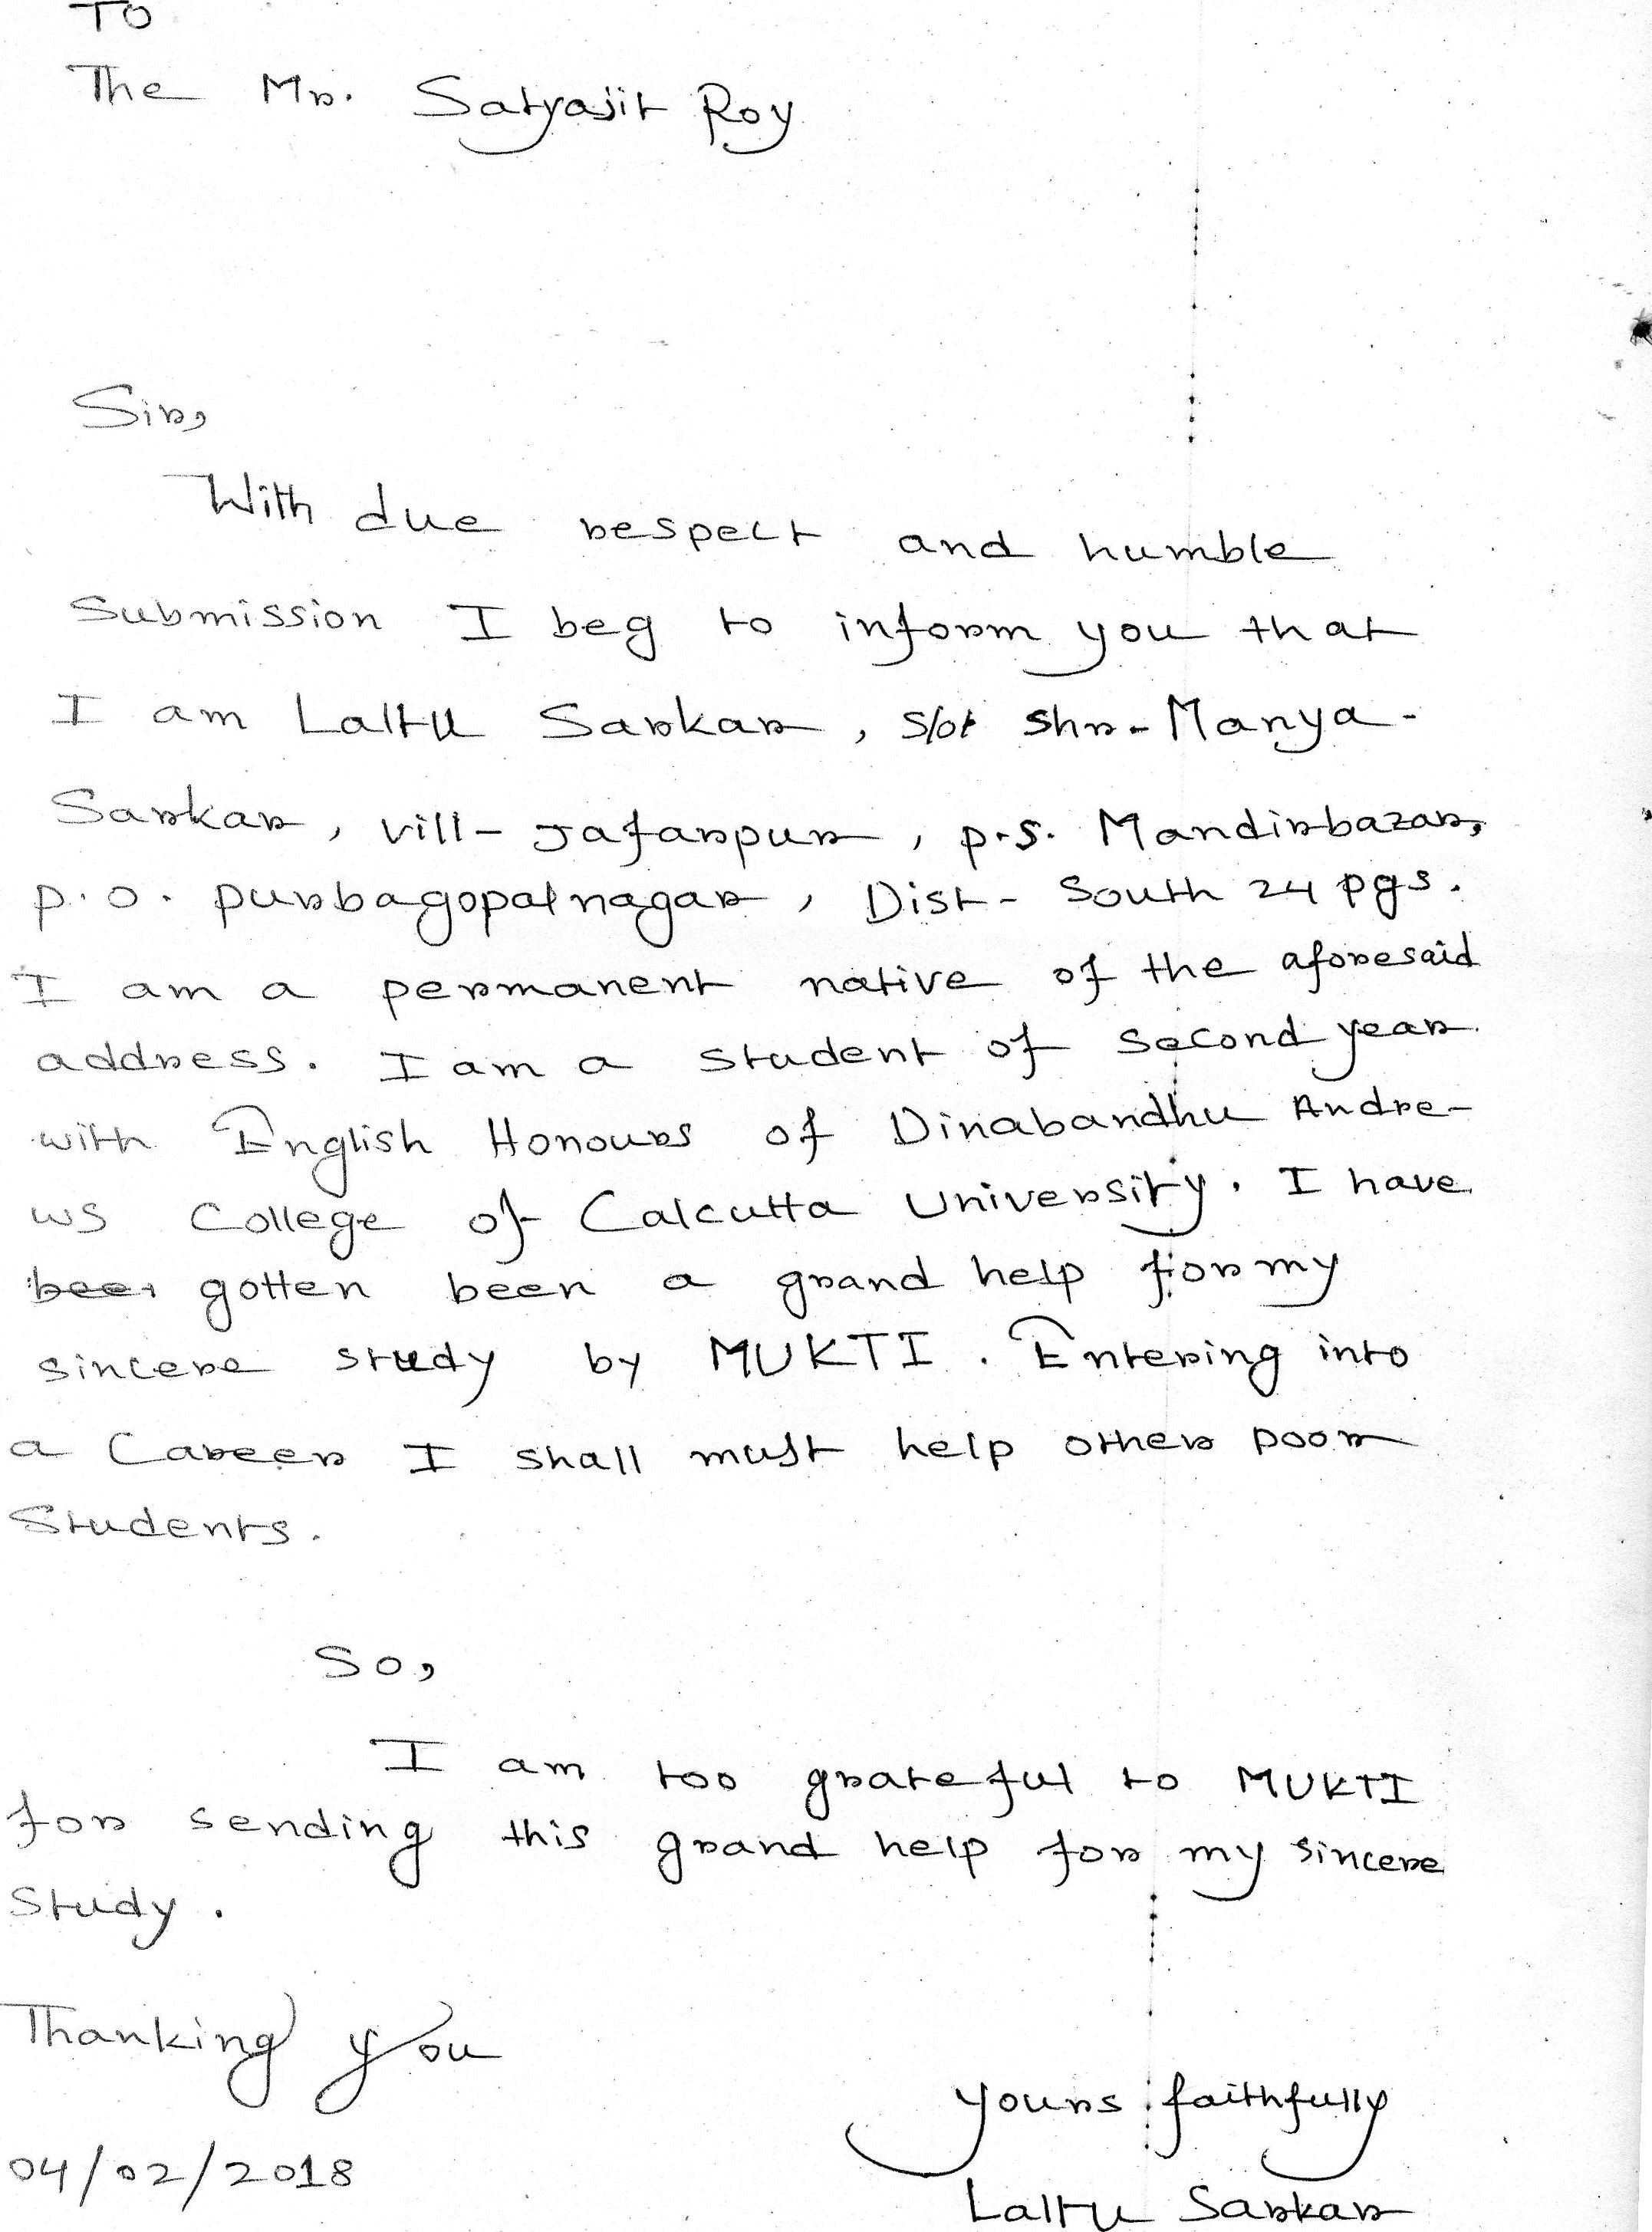 TO
The Mr. Satyajit Roy
Sir,
With due respect and humble
Submission I beg to inform you that
I am Laltu Sarkar, s/of Shr.- Manya-
Sarkar, vill- Jafarpur, p.s. Mandirbazar,
p.o. purbagopalnagar, Dist- South 24 pgs.
I am a permanent native of the aforesaid
address. I am a student of second year
with English Honours of Dinabandhu Andre-
ws College of Calcutta University. I have
beer gotten been a grand help for my
sincere study by MUKTI. Entering into
a Career I shall must help other poor
Students.
So,
I am too grateful to MUKTI
for sending this grand help for my sincere
Study.
Thanking you
yours faithfully
04/02/2018
Laltu Sarkar